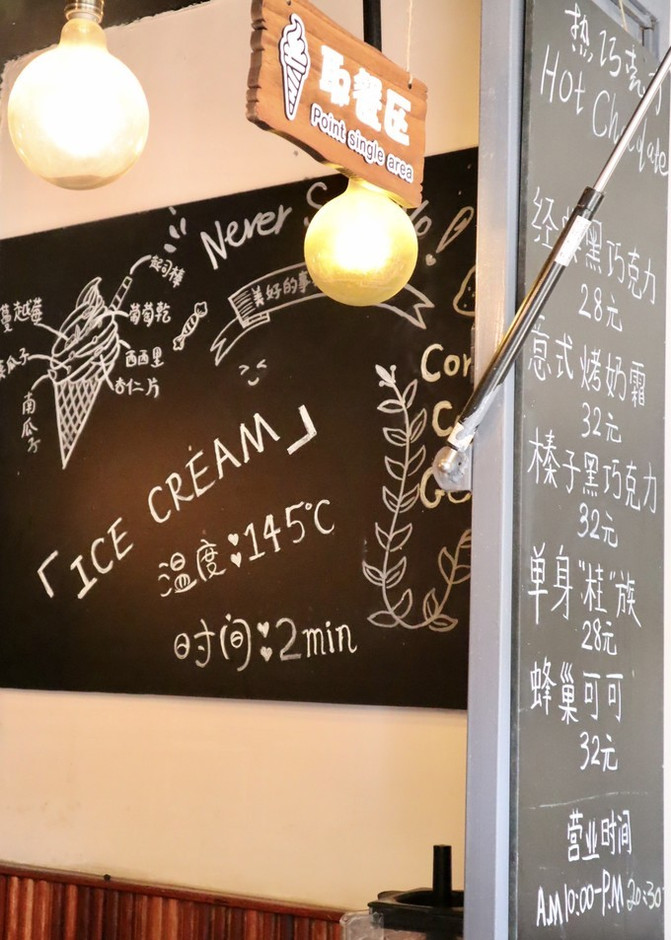 取餐区
Point single area
Never
美好的事
起司棒
蔓越莓
葡萄乾
西西里
杏仁片
南瓜子
「ICE CREAM」
温度:145℃
时间:2min
热巧克力
Hot Chocolate
经典黑巧克力
28元
意式烤奶霜
32元
榛子黑巧克力
32元
单身"桂"族
28元
蜂巢可可
32元
营业时间
A.M10:00-P.M20:30